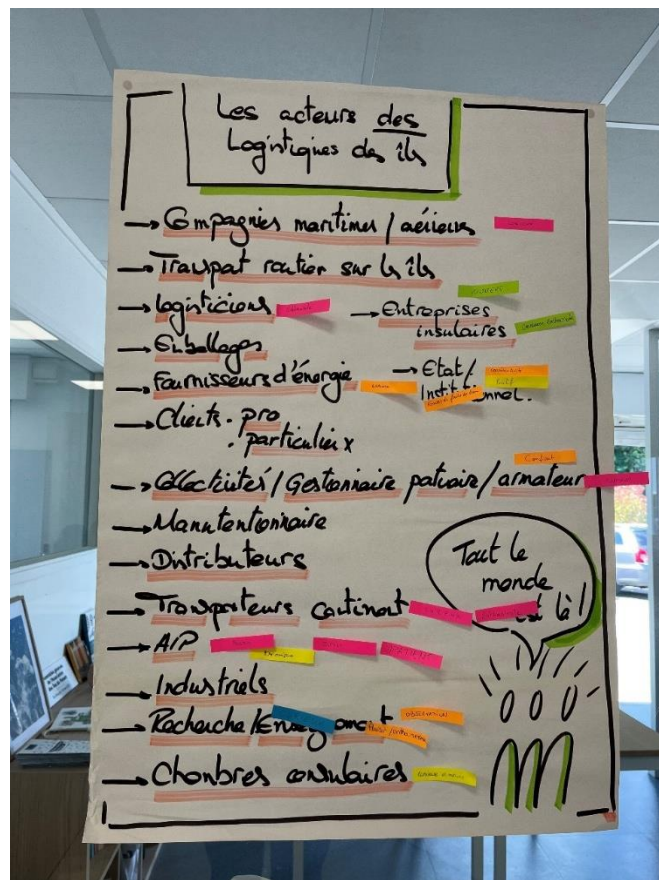 Les acteurs des
Logistiques des îles
→ Compagnies maritimes / aériens
→ Transport routier sur les îles
→ logisticiens
→ Entreprises
insulaires
→ Emballages
→ Fournisseurs d'énergie
→ Etat /
Instit nnel.
→ Clients . pro
. particulier x
→ Collectivités / Gestionnaire portuaire / armateur
→ Manutentionnaire
→ Distributeurs
→ Transporteurs continent
→ AIP
→ Industriels
→ Recherche / Enseignement
observation
→ Chambres consulaires
Tout le
monde
est là !